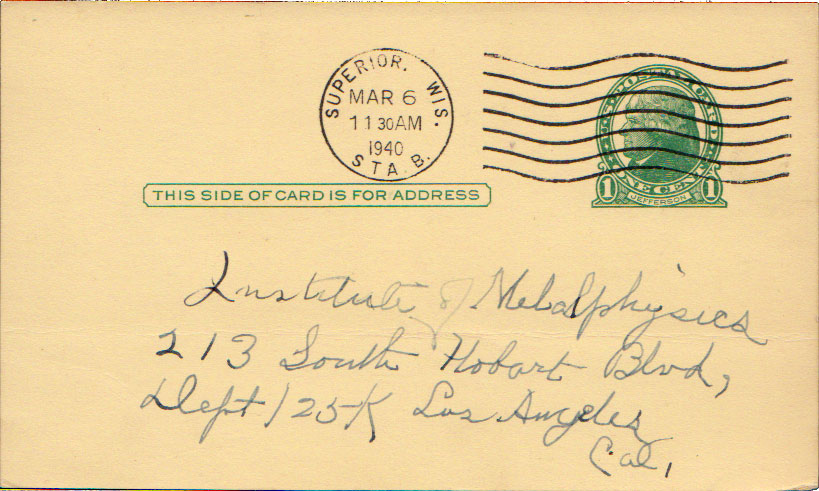 SUPERIOR, WIS.
MAR 6
11 30 AM
1940
STA. B.
U.S. POSTAL CARD
ONE CENT
1 JEFFERSON 1
THIS SIDE OF CARD IS FOR ADDRESS
Institute of Metalphysics
213 South Hobart Blvd,
Dept 125K Los Angeles
Cal,